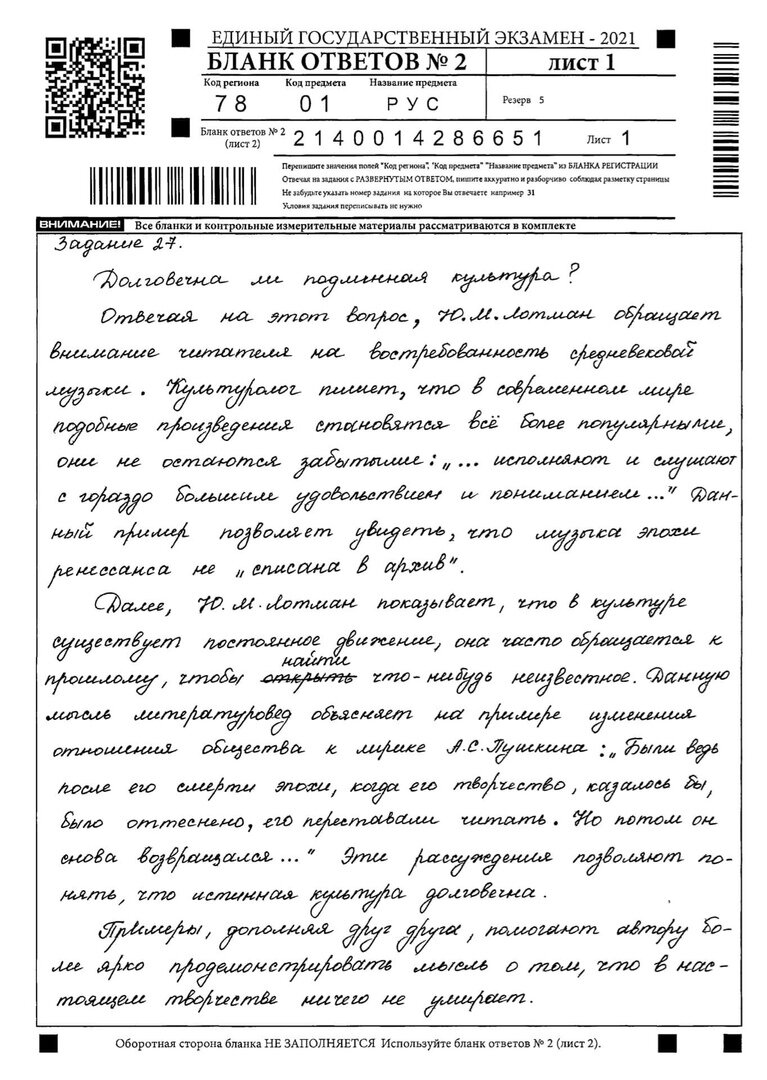 ЕДИНЫЙ ГОСУДАРСТВЕННЫЙ ЭКЗАМЕН - 2021
БЛАНК ОТВЕТОВ № 2 лист 1
Код региона Код предмета Название предмета
78 01 РУС Резерв 5
Бланк ответов № 2 (лист 2) 2140014286651 Лист 1
Перепишите значения полей "Код региона", "Код предмета" "Название предмета" из БЛАНКА РЕГИСТРАЦИИ
Отвечая на задания с РАЗВЕРНУТЫМ ОТВЕТОМ, пишите аккуратно и разборчиво соблюдая разметку страницы
Не забудьте указать номер задания на которое Вы отвечаете например 31
Условия задания переписывать не нужно
ВНИМАНИЕ! Все бланки и контрольные измерительные материалы рассматриваются в комплекте
Задание 27.
Долговечна ли подлинная культура?
Отвечая на этот вопрос, Ю.М.Лотман обращает
внимание читателя на востребованность средневековой
музыки. Культуролог пишет, что в современном мире
подобные произведения становятся всё более популярными,
они не остаются забытыми: „... исполняют и слушают
с гораздо большим удовольствием и пониманием..." Дан-
ный пример позволяет увидеть, что музыка эпохи
ренессанса не „списана в архив".
Далее, Ю.М.Лотман показывает, что в культуре
существует постоянное движение, она часто обращается к
найти
прошлому, чтобы открыть что-нибудь неизвестное. Данную
мысль литературовед объясняет на примере изменения
отношения общества к лирике А.С.Пушкина: „Были ведь
после его смерти эпохи, когда его творчество, казалось бы,
было оттеснено, его переставали читать. Но потом он
снова возвращался..." Эти рассуждения позволяют по-
нять, что истинная культура долговечна.
Примеры, дополняя друг друга, помогают автору бо-
лее ярко продемонстрировать мысль о том, что в нас-
тоящем творчестве ничего не умирает.
Оборотная сторона бланка НЕ ЗАПОЛНЯЕТСЯ Используйте бланк ответов № 2 (лист 2).